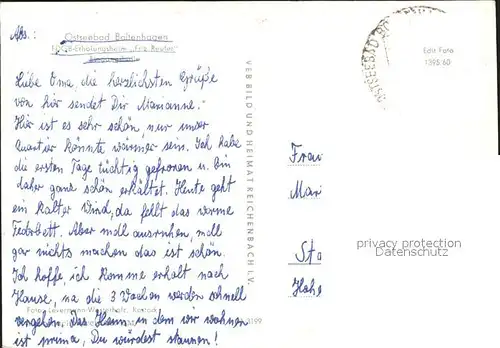 Abs.:
Ostseebad Boltenhagen
FDGB-Erholungsheim „Fritz Reuter"
Liebe Oma, die herzlichsten Grüße
von hier sendet Dir Marianne.
Hier ist es sehr schön, nur unser
Quartier könnte wärmer sein. Ich habe
die ersten Tage tüchtig gefroren u. bin
daher ganz schön erkältet. Heute geht
ein kalter Wind, da fehlt das warme
Federbett. Aber mall ausruhen, mall
gar nichts machen das ist schön.
Ich hoffe, ich komme erholt nach
Hause, na die 3 Wochen werden schnell
Foto: Levermann-Westerholz, Rostock
vergehen. Das Haus in dem wir wohnen
ist prima, Du würdest staunen!
VEB BILD UND HEIMAT REICHENBACH I. V.
OSTSEEBAD
Edit Foto
1395/60
Frau
Mari
Sta
Hohe
privacy protection
Datenschutz